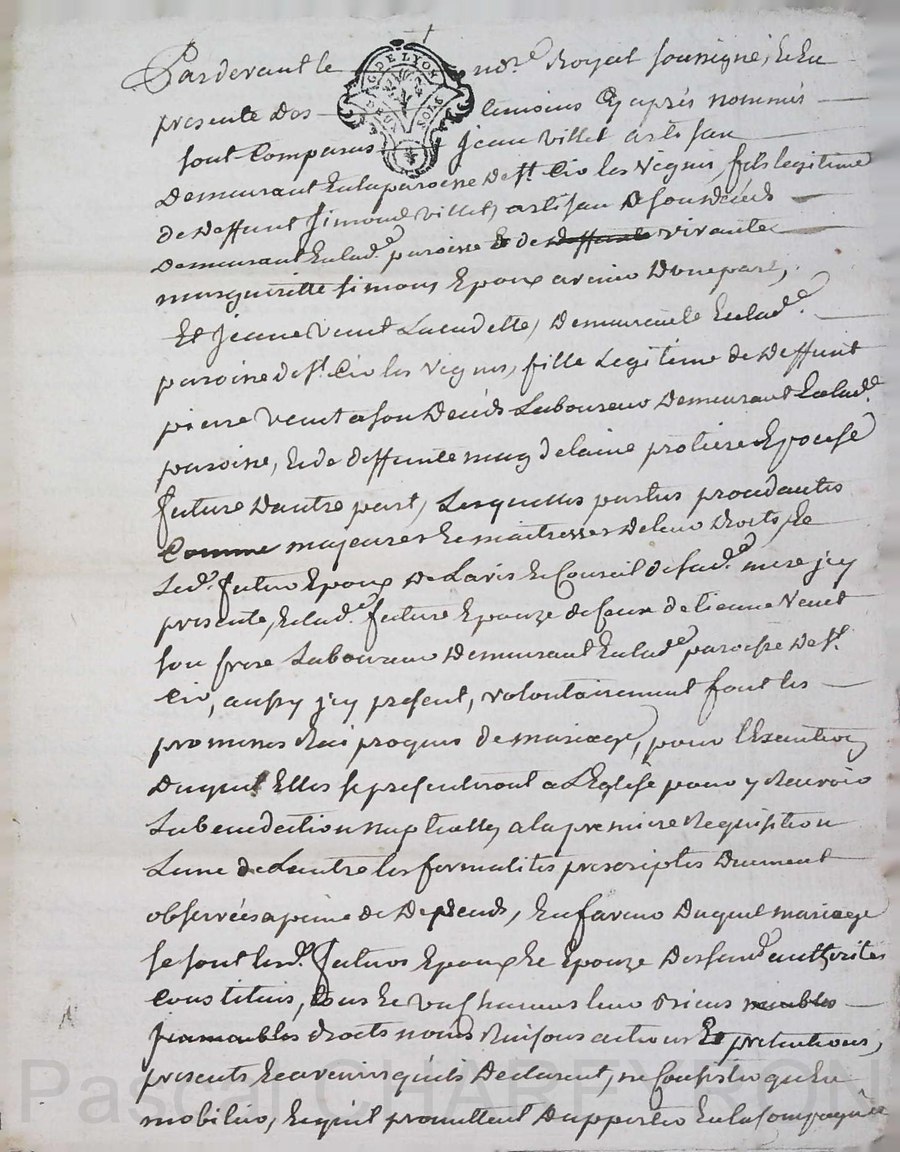 Pardevant le no.re Royal soussigné, & En
presence des temoins Cy après nommés
sont Comparus Jean villet artisan
Demeurant En la paroisse de st. Cir les vignes, fils legitime
de deffunt Simond villet, artisan a son décéds
demeurant En lad.e paroisse & de deffunte vivante
marguiritte simons Epoux avenir d'une part,
Et Jeanne venet La cadette, Demeurante En lad.e
paroisse de st. Cir les vignes, fille Legitime de Deffunt
pierre venet a son Décéds Laboureur Demeurant En lad.e
paroisse, & de deffunte magdelaine protiere Epouse
future D'autre part, Lesquelles parties procedantes
Comme majeures & maitresses de leur droits, &
Led. futur Epoux De L'avis & Conseil de sad.e mere jcy
presente, & lad.e future Epouze de ceux d'etienne Venet
son frere Laboureur Demeurant En lad.e paroisse De st.
Cir, aussy jcy present, volontairement font les
promesses Reciproques de mariage, pour l'Execution
Duquel Elles se presenteront a L'Eglise pour y Recevoir
La benediction nuptialle, a la premiere Requisition
L'une de L'autre les formalités prescriptes Duement
observées a peine de Depends, En faveur Duquel mariage
se sont lesd. futurs Epoux & Epouze Desd. authorités
Constitués, tous & un chacuns leur Biens meubles
jmmeubles droits noms Raisons actions & pretentions,
presents & avenir qu'ils Declarent, ne Consister qu'En
mobilier, & quil promettent D'apporter En la Compagnie
G DE LYON
DEUX SOLS
Pascal CHAREYRON